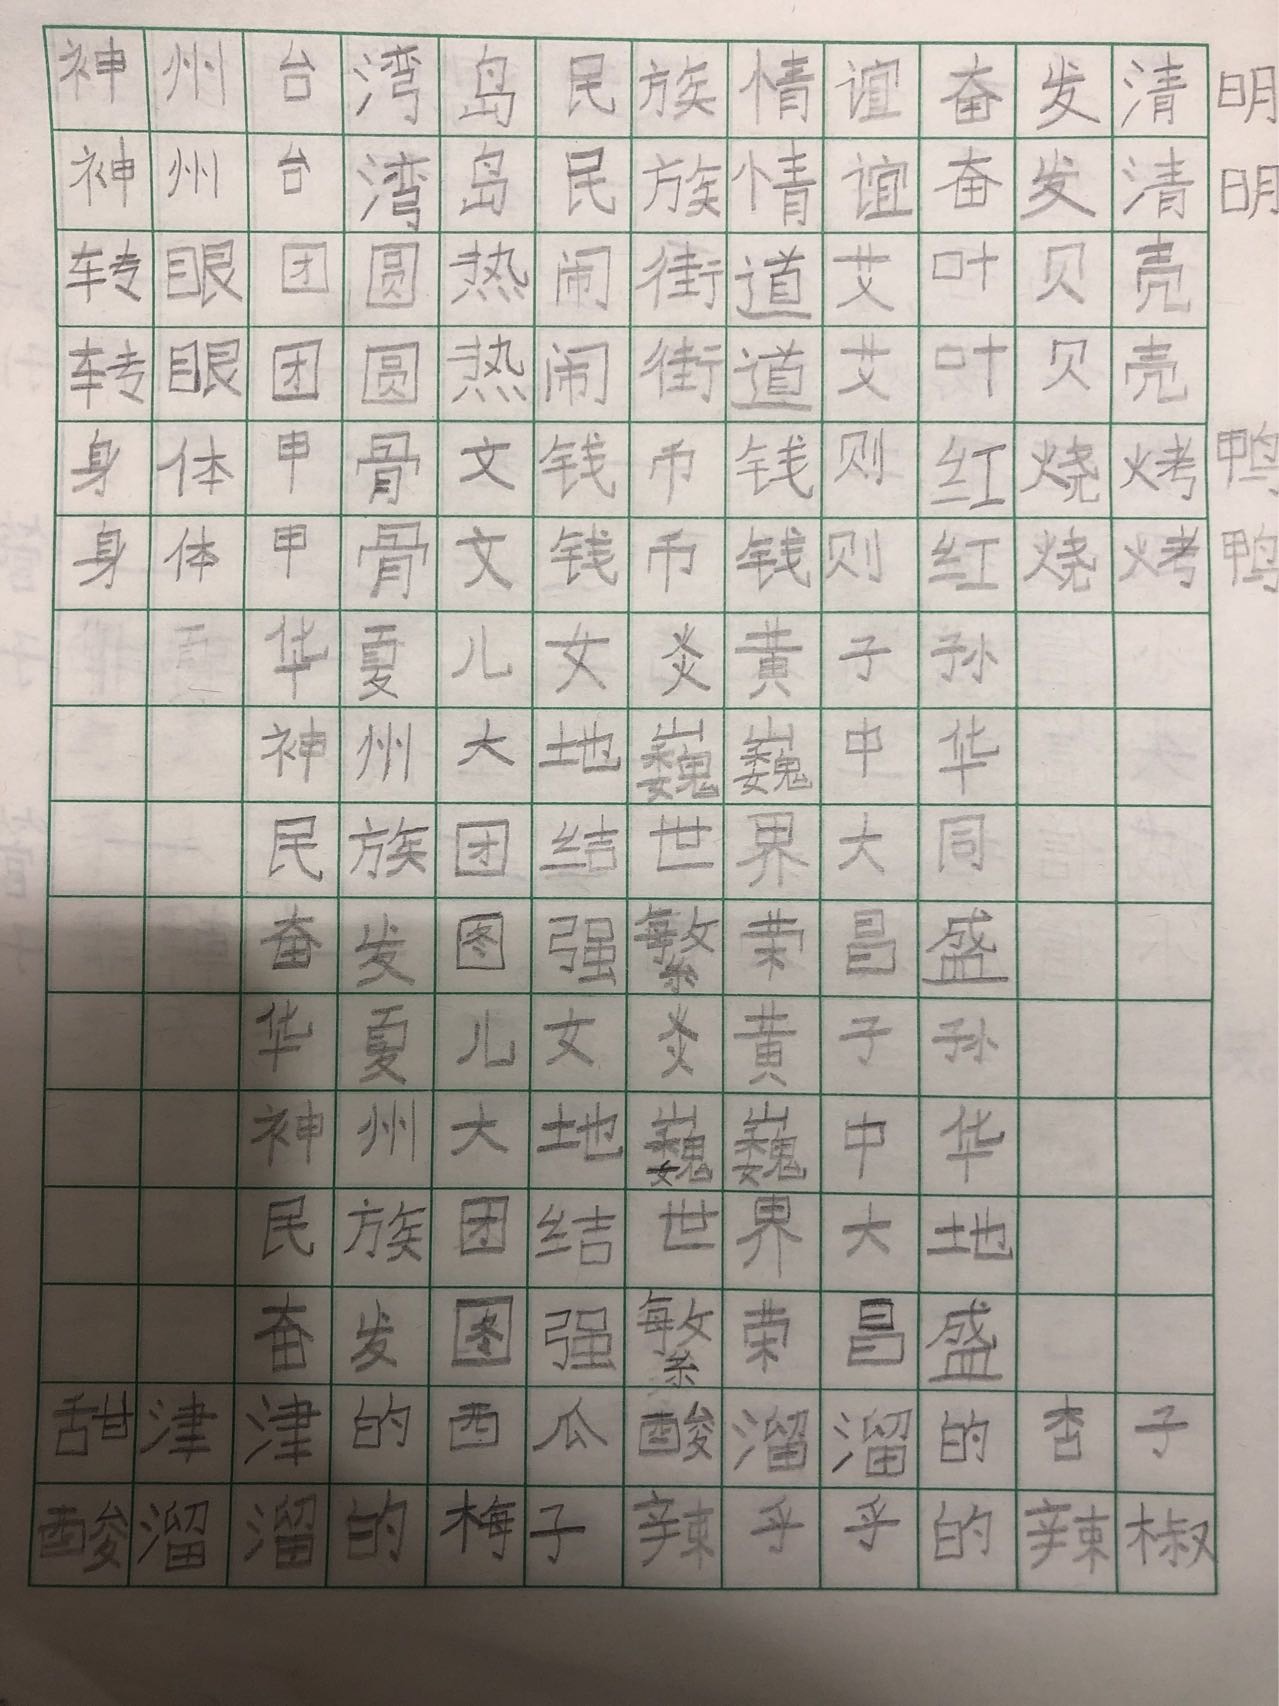 神州台湾岛民族情谊奋发清明
神州台湾岛民族情谊奋发清明
转眼团圆热闹街道艾叶贝壳
转眼团圆热闹街道艾叶贝壳
身体甲骨文钱币钱则红烧烤鸭
身体甲骨文钱币钱则红烧烤鸭
华夏儿女炎黄子孙
神州大地巍巍中华
民族团结世界大同
奋发图强繁荣昌盛
华夏儿女炎黄子孙
神州大地巍巍中华
民族团结世界大地
奋发图强繁荣昌盛
甜津津的西瓜酸溜溜的杏子
酸溜溜的梅子辣乎乎的辣椒